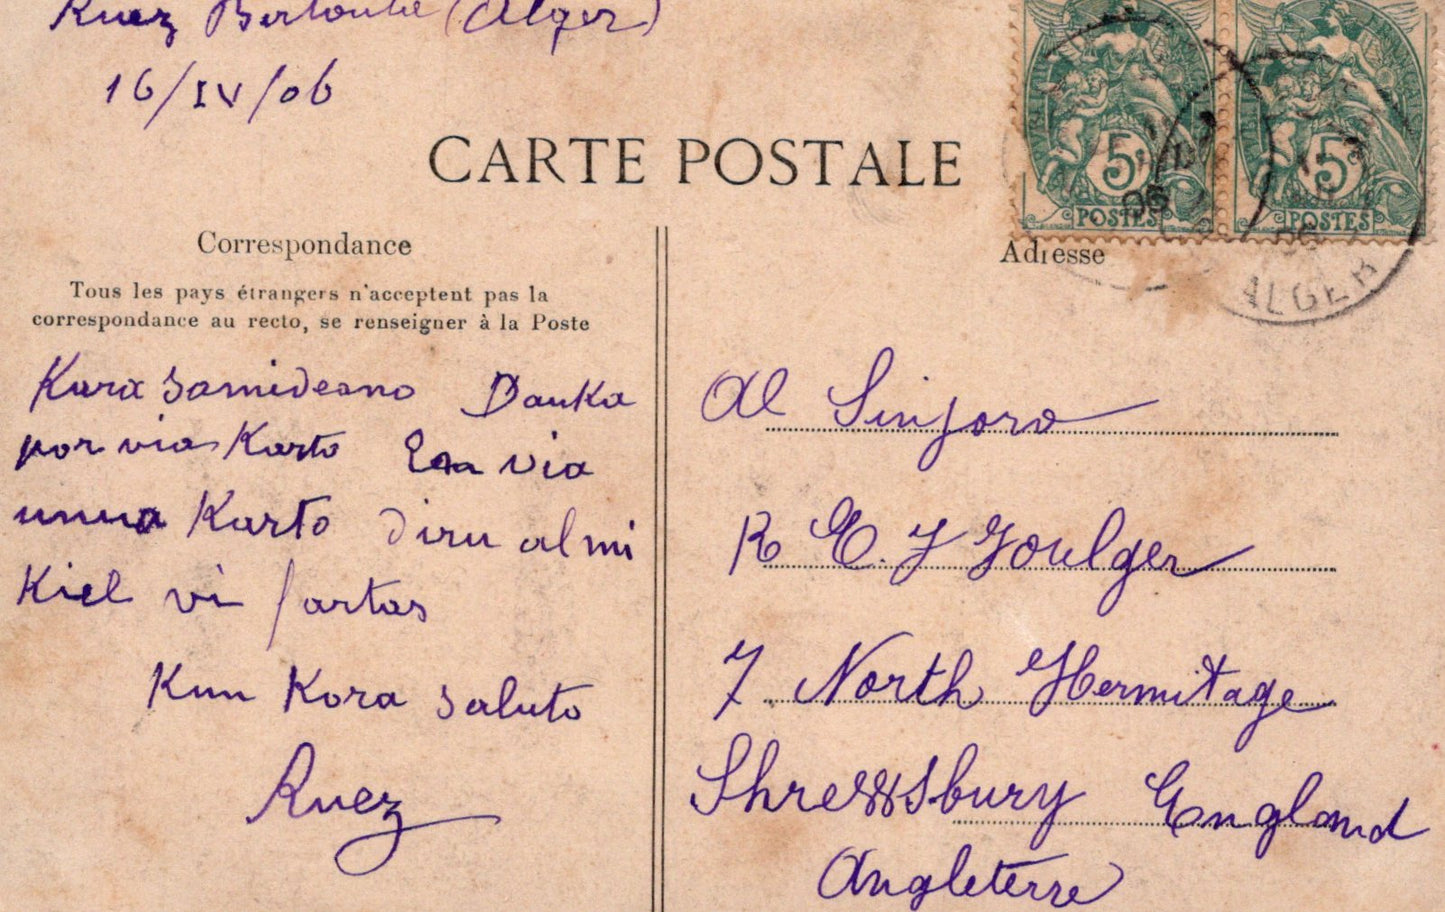 Ruez Bertouche (Alger)
16/IV/06
CARTE POSTALE
5
POSTES
06
5
POSTES
06
ALGER
Correspondance
Tous les pays étrangers n'acceptent pas la
correspondance au recto, se renseigner à la Poste
Adresse
Kara Samideano Danka
por via Karto
unua Karto diru al mi
Kiel vi fartas
Kun Kora Saluto
Ruez
Al Sinjoro
R E. J Goulger
7 North Hermitage
Shrewsbury England
Angleterre